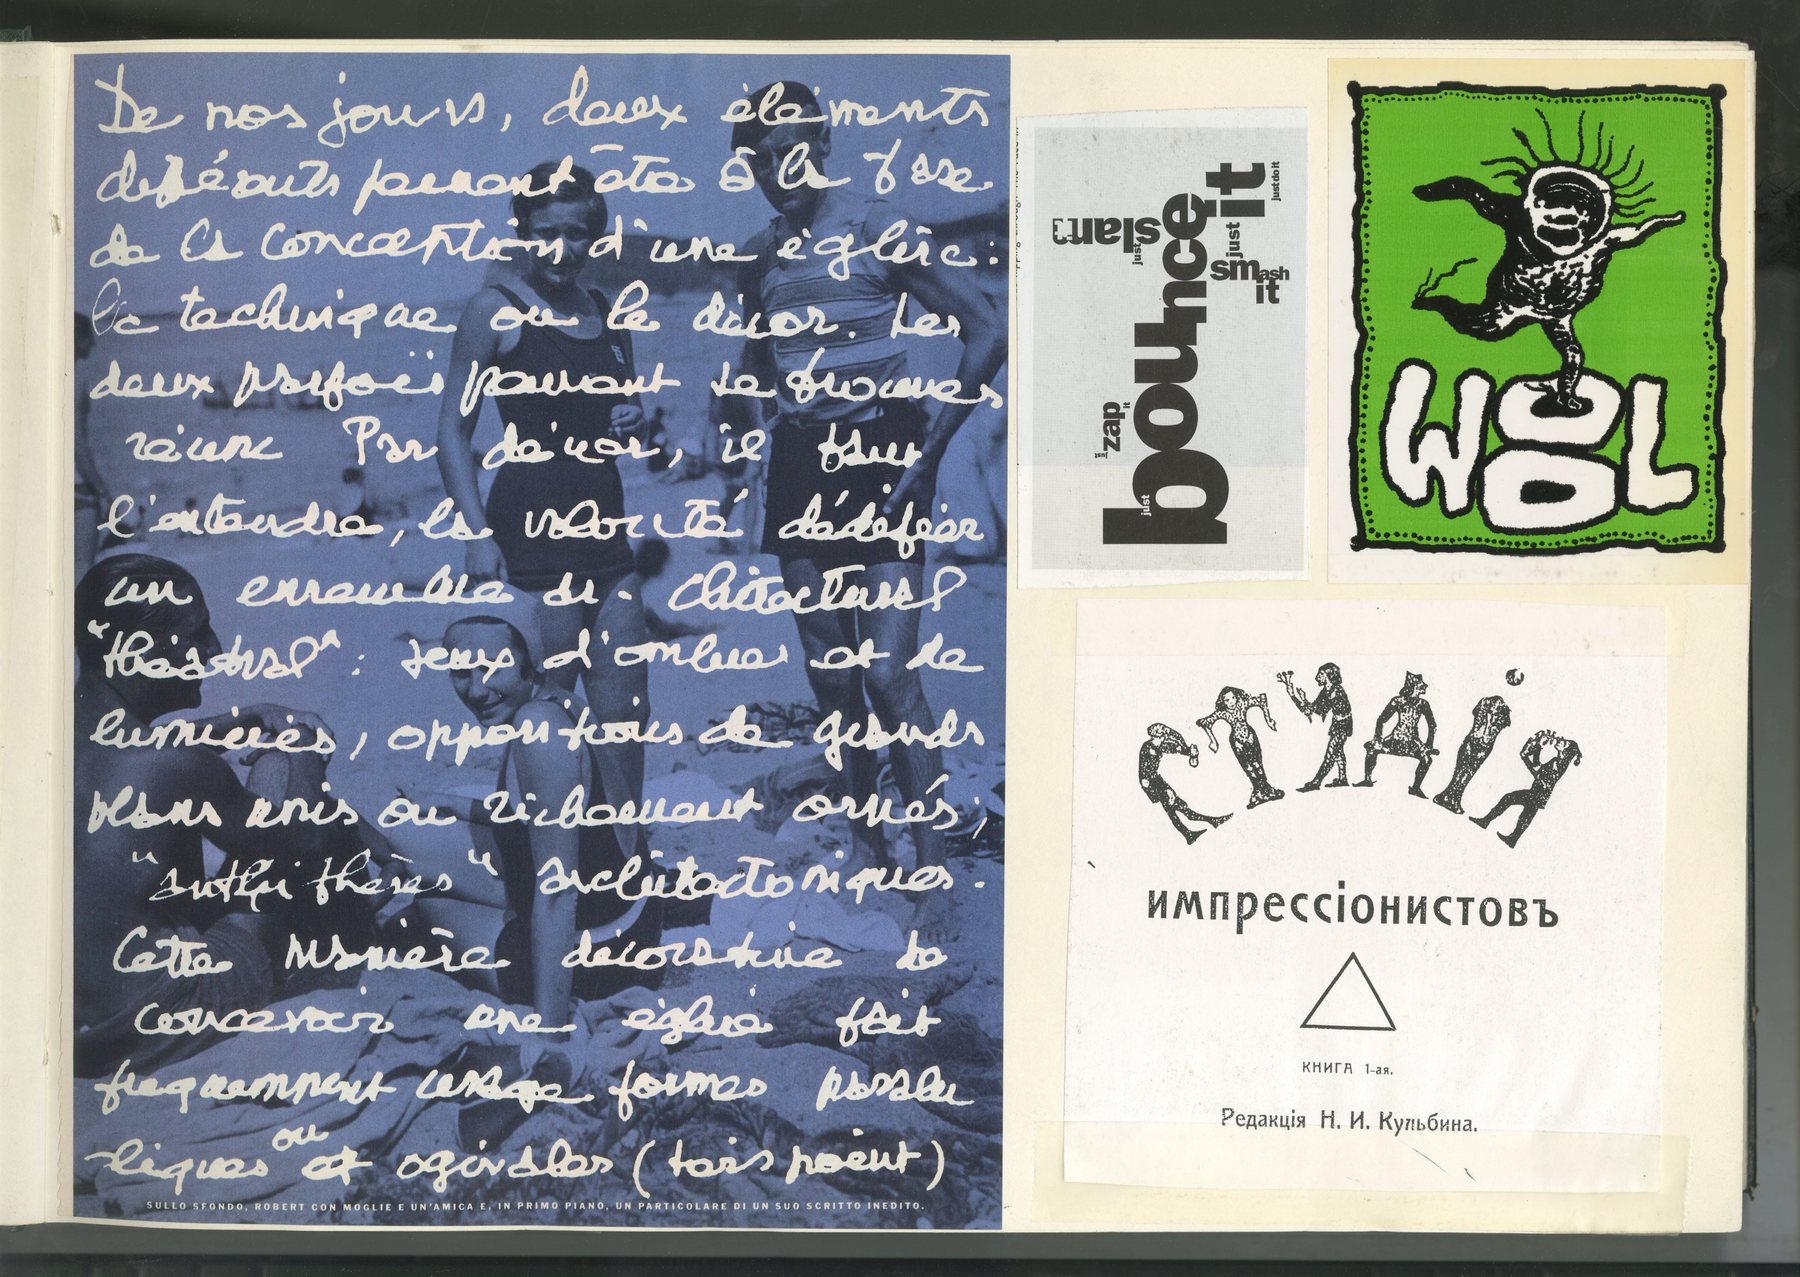 De nos jours, deux éléments
différents peuvent être à la base
de la conception d'une église:
la technique ou le décor. Les
deux parfois peuvent se trouver
réunis Par décor, il faut
l'entendre, la volonté d'édifier
un ensemble architectural
"théâtral": jeux d'ombres et de
lumières, oppositions de grands
plans unis ou richement ornés;
architectoniques.
Cette manière décorative de
concevoir une église fait
fréquemment formes
ou
et ogivales (tiers point)
SULLO SFONDO, ROBERT CON MOGLIE E UN'AMICA E, IN PRIMO PIANO, UN PARTICOLARE DI UN SUO SCRITTO INEDITO.
just bounce it
just slam it
just smash it
just do it
just zap it
WOOL
СТУДІЯ
импрессіонистовъ
КНИГА 1-ая.
Редакція Н. И. Кульбина.